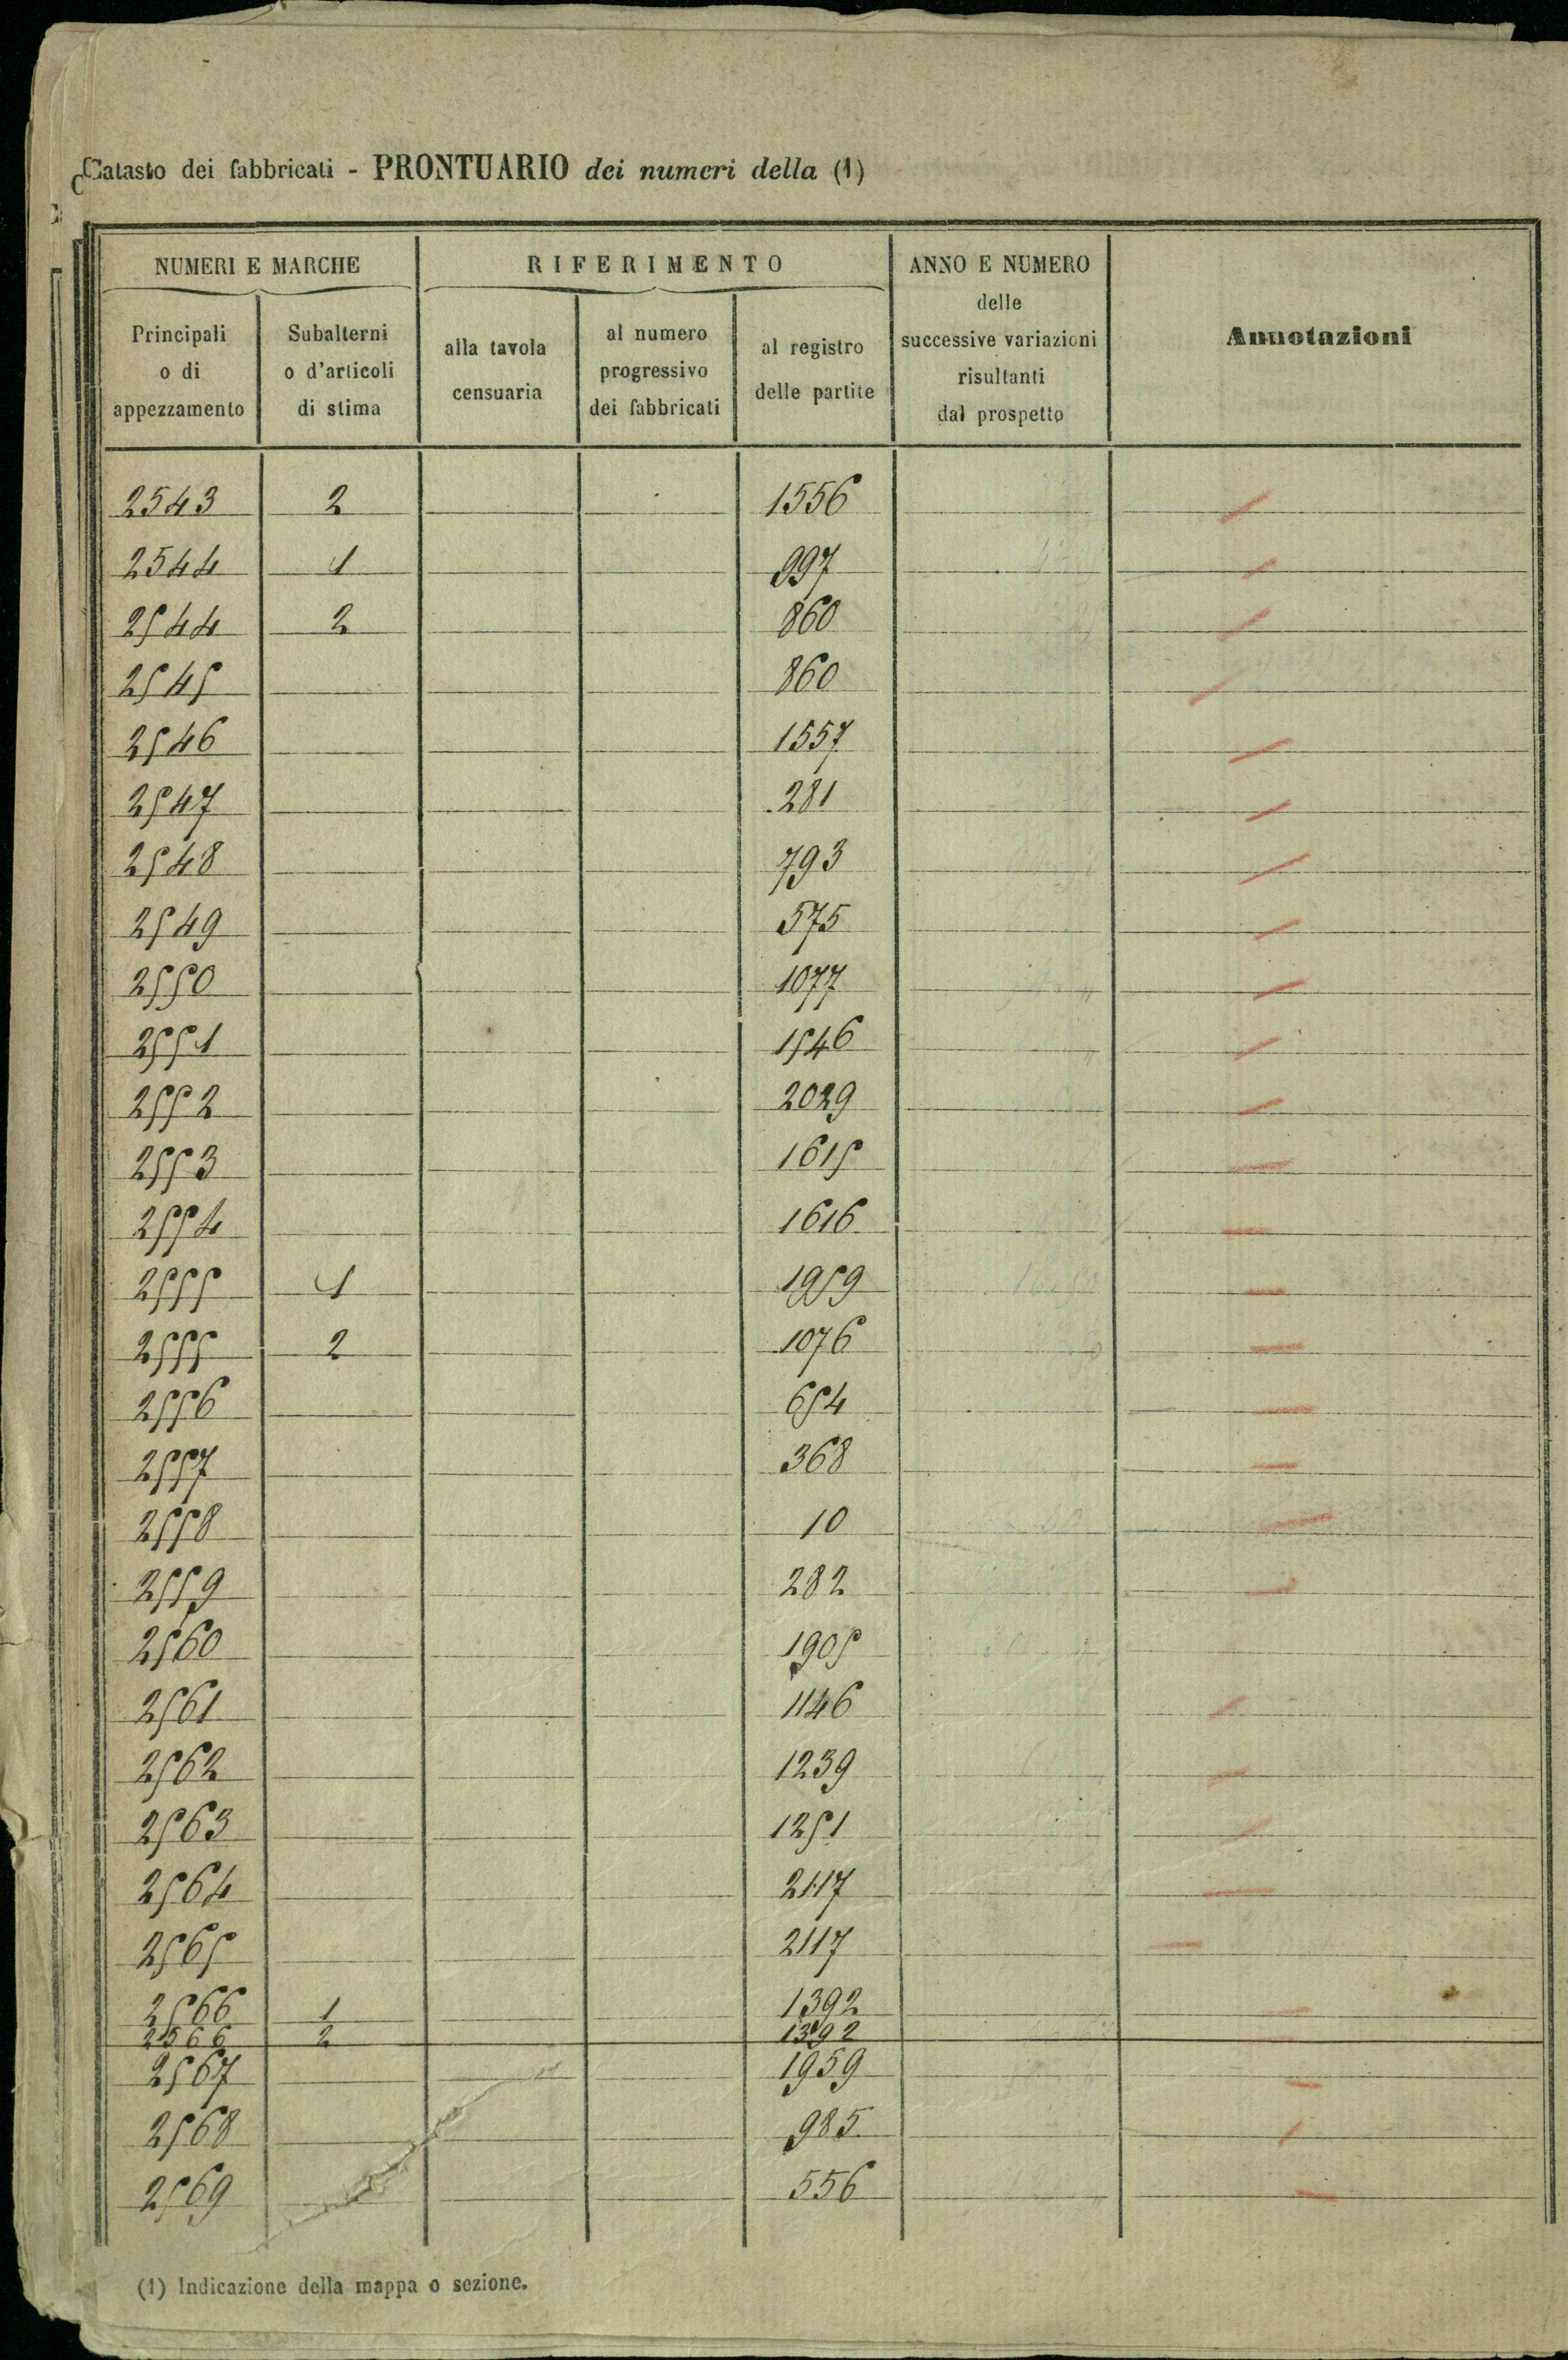 Catasto dei fabbricati - PRONTUARIO dei numeri della (1)
NUMERI E MARCHE
RIFERIMENTO
ANNO E NUMERO
delle
successive variazioni
risultanti
dal prospetto
Annotazioni
Principali
o di
appezzamento
Subalterni
o d'articoli
di stima
alla tavola
censuaria
al numero
progressivo
dei fabbricati
al registro
delle partite
2543 2 1556
2544 1 997
2544 2 860
2545 860
2546 1557
2547 281
2548 793
2549 575
2550 1077
2551 1546
2552 2029
2553 1615
2554 1616
2555 1 1959
2555 2 1076
2556 654
2557 368
2558 10
2559 282
2560 1905
2561 1146
2562 1239
2563 1251
2564 2117
2565 2117
2566 1 1392
2566 2 1392
2567 1959
2568 985
2569 556
(1) Indicazione della mappa o sezione.